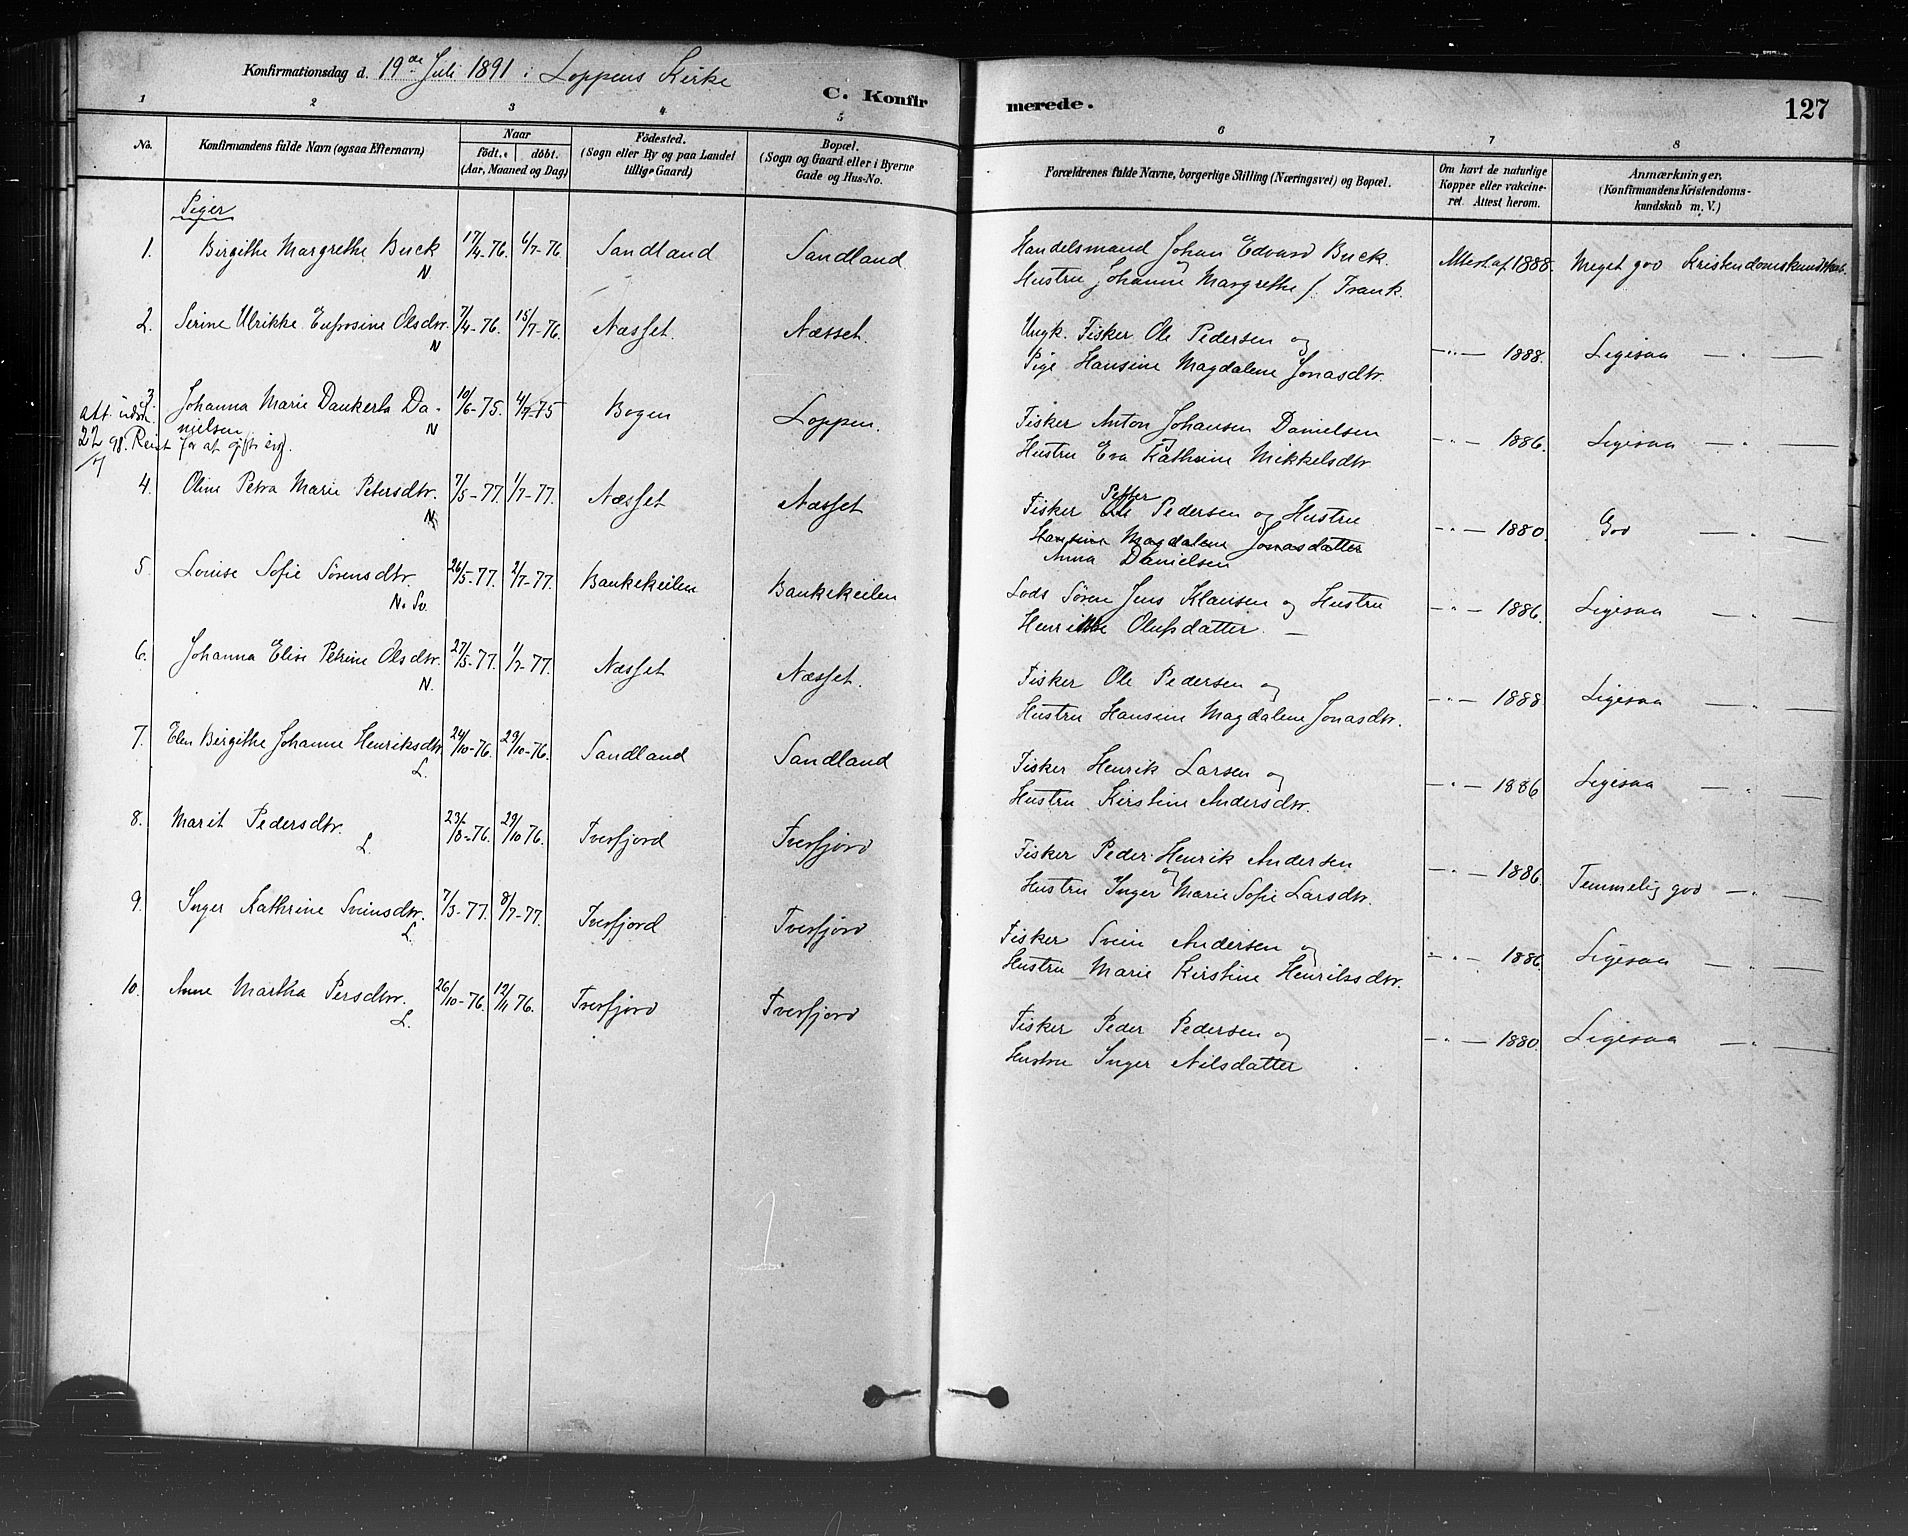 Konfirmationsdag d. 19de Juli 1891 i Loppens Kirke
C. Konfirmerede.
127
1 2 3 4 5 6 7 8
No.
Konfirmandens fulde Navn (ogsaa Efternavn)
Naar
födt. döbt.
(Aar, Maaned og Dag)
Födested.
(Sogn eller By og paa Landet
tillige Gaard)
Bopæl.
(Sogn og Gaard eller i Byerne
Gade og Hus-No.
Forældrenes fulde Navne, borgerlige Stilling (Næringsvei) og Bopæl.
Om havt de naturlige
Kopper eller vakcine-
ret. Attest herom.
Anmærkninger.
(Konfirmandens Kristendoms-
kundskab m. V.)
Piger
1. Birgithe Margrethe Buck N 17/4-76. 6/7-76 Sandland Sandland
Handelsmand Johan Edvard Buck. og
Hustru Johanne Margrethe f. Frank.
Attest af 1888. Meget god Kristendomskundskab.
2. Serine Ulrikke Eufrosine Olsdtr. N 7/4-76. 15/7-76 Næsset. Næsset.
Ungk. Fisker Ole Pedersen og
Pige Hansine Magdalene Jonasdtr.
—"— 1888. Ligesaa — " —
3 Johanna Marie Dankerta Da-
nielsen N 10/6-75. 4/7-75 Bogen Loppen.
att. udst.
22/7 98. Reist for at gifte sig.
Fisker Anton Johansen Danielsen og
Hustru Eva Kathrine Mikkelsdtr
—"— 1886. Ligesaa — " —
4. Oline Petra Marie Petersdtr. N 7/5-77. 1/7-77. Næsset Næsset
Petter
Fisker Ole Pedersen og Hustru
Hansine Magdalene Jonasdatter
Anna Danielsen
—"— 1880. God — " —
5. Louise Sofie Sörensdtr. N. Sv. 26/5-77. 2/7-77. Bankekeilen Bankekeilen
Lods Søren Jens Klausen og Hustru
Henrikke Olufsdatter. —
—"— 1886. Ligesaa — " —
6. Johanna Elise Petrine Olsdtr. N. 27/5-77. 1/7-77. Næsset Næsset.
Fisker Ole Pedersen og
Hustru Hansine Magdalene Jonasdtr.
—"— 1888 Ligesaa — " —
7. Elen Birgithe Johanne Henriksdtr L. 24/10-76. 29/10-76. Sandland Sandland
Fisker Henrik Larsen og
Hustru Kirstine Andersdtr.
—"— 1886 Ligesaa — " —
8. Marit Pedersdtr. L. 23/8-76. 29/10 76. Tverfjord Tverfjord
Fisker Peder Henrik Andersen
og
Hustru Inger Marie Sofie Larsdtr.
—"— 1886. Temmelig god — " —
9. Inger Kathrine Sveinsdtr. L. 7/3-77. 8/7-77. Tverfjord Tverfjord
Fisker Svein Andersen og
Hustru Marie Kirstine Henriksdtr.
—"— 1886. Ligesaa — " —
10. Anne Martha Persdtr. L. 26/10-76. 12/11 76. Tverfjord Tverfjord
Fisker Peder Pedersen og
Hustru Inger Nilsdatter
—"— 1880. Ligesaa — " —